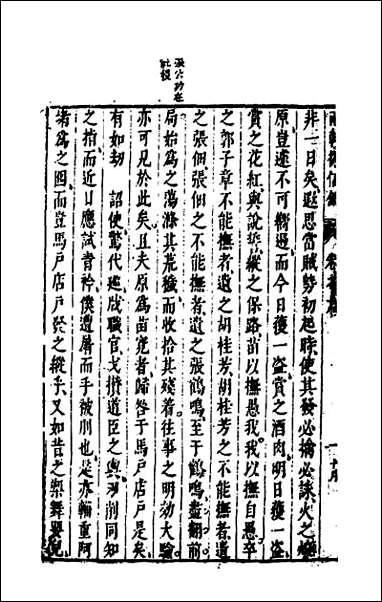 張公功在
社稷
非一日矣遐思當賊勢初起時使其發必擒必誅火之燎
原豈遂不可嚮邇而今日復一盜賞之酒肉明日復一盜
賞之花紅與說
縱之保路苗以撫愚我我以撫自愚卒
之郭子章不能撫者遺之胡桂芳胡桂芳之不能撫者遺
之張佃張佃之不能撫者遺之張鶴鳴至于鶴鳴盡翻前
局始為之蕩滌其荒穢而收拾其殘着往事之明効大驗
亦可見於此矣且夫原為苗寃者歸咎于馬戶店戶是矣
有如刼詔使驚代巡戕職官戈攢道臣之輿刃削同知
之指而近日應試青衿僕遭屠而手被刖也是亦輛重阿
堵為之囮而豈馬戶店戶發之縱乎又如昔之梨舞嬰倪